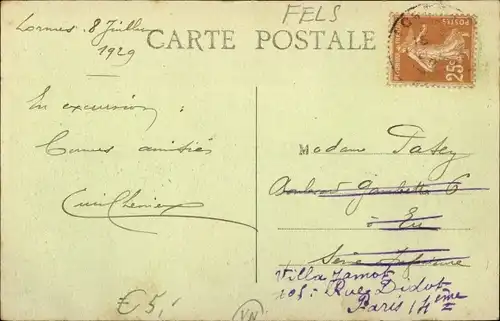 Lormes. 8 Juillet
1929
FELS
CARTE POSTALE
POSTES
25c
En excursion :
Bonnes amitiés
Madame Patey
Boulevard Gambetta 6
à Eu
Seine Inférieure
Villa Jamot
105: Rue Didot
Paris 14ème
€ 5,
VN